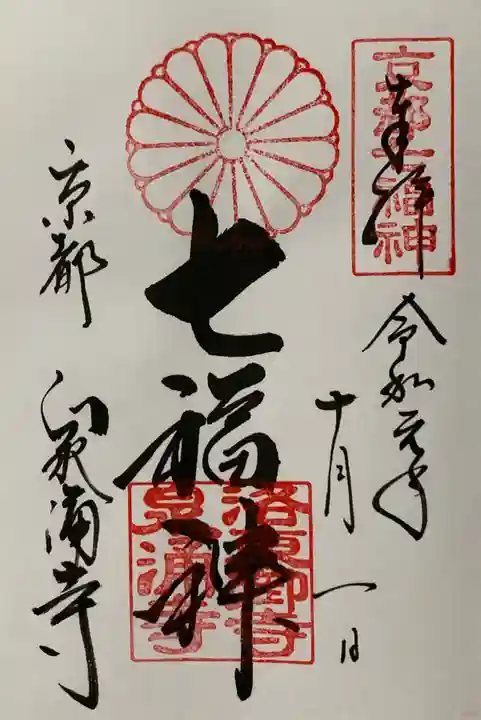 京都七福神
奉拝
令和元年
十月一日
七福神
洛東御寺
泉涌寺
京都 泉涌寺